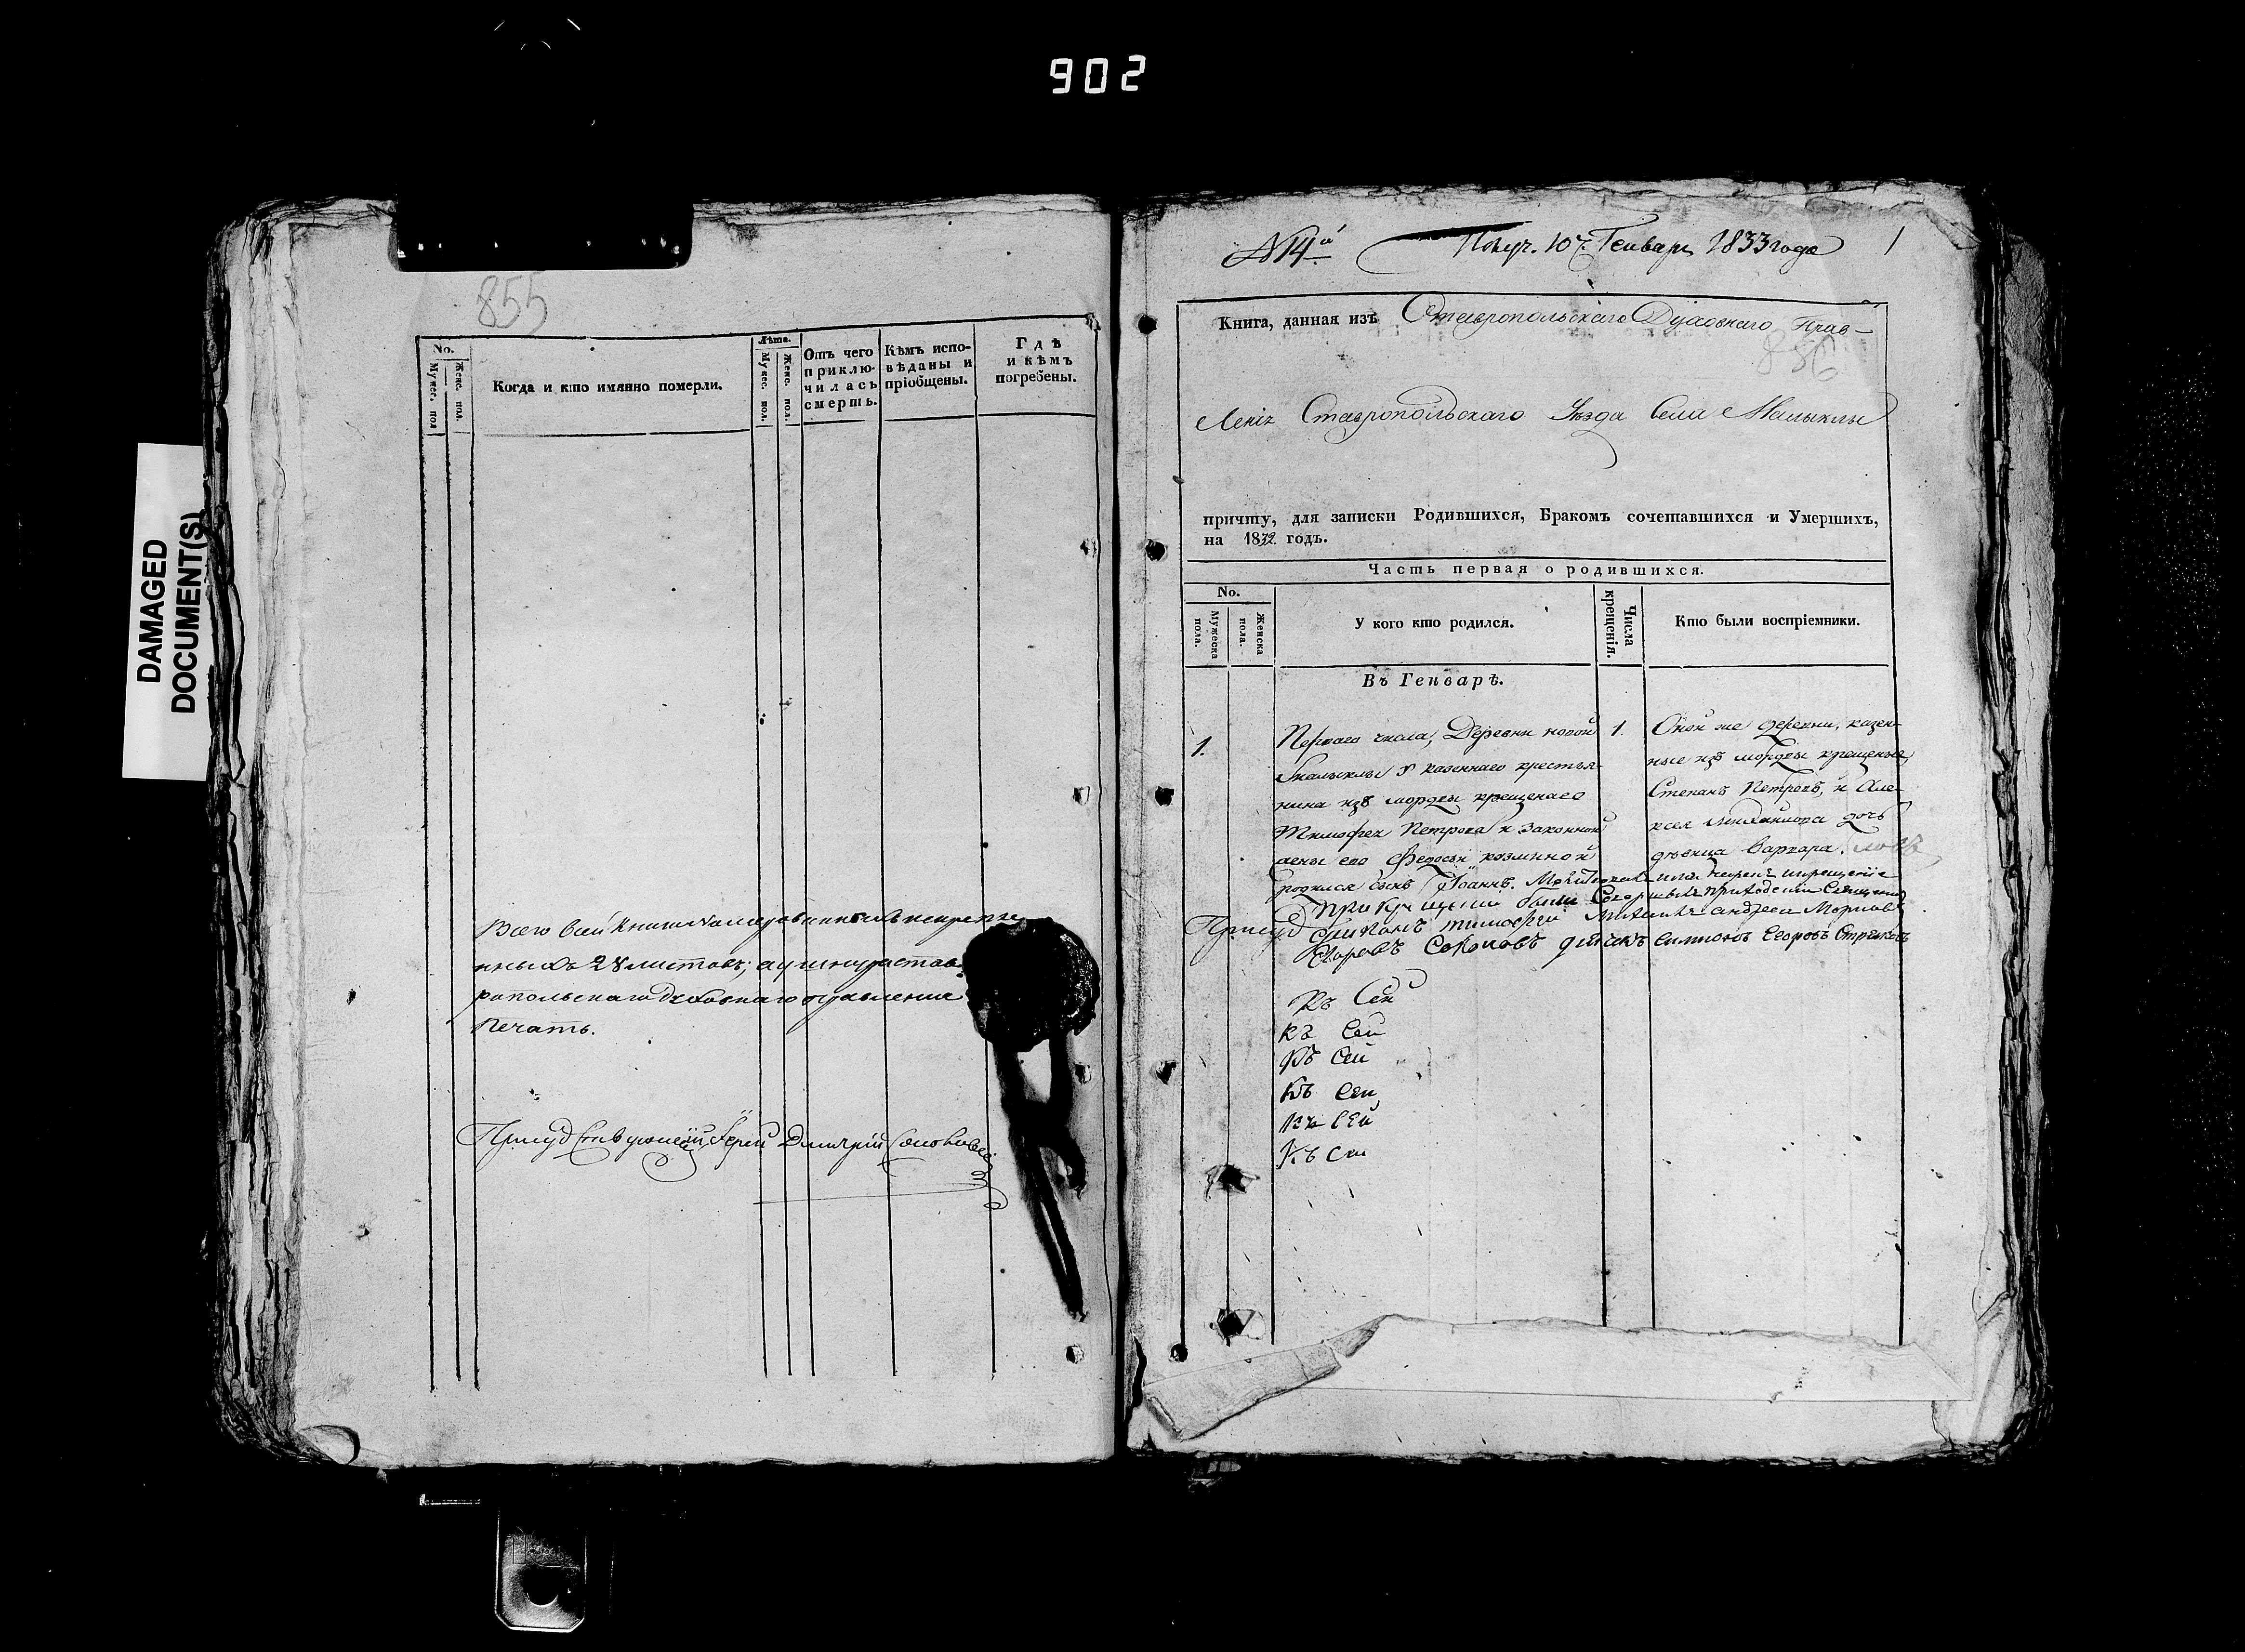 902
DAMAGED
DOCUMENT(S)
855
No.
Мужес. пол
Женс. пол.
Когда и кто имянно померли.
Лѣта.
Мужес. пол.
Женс. пол.
Отъ чего
приклю-
чилась
смерть.
Кѣмъ испо-
вѣданы и
пріобщены.
Гдѣ
и кѣмъ
погребены.
Всего въ сей книги
28 листовъ;
ропольскаго Духовнаго Правления
печать.
Присуд Іерей Дмитрій
N 14й
Получ. 10 Генваря 1833 года
1
Книга, данная изъ Ставропольскаго Духовнаго Прав-
856
ленія Ставропольскаго Уѣзда Села Малыклы
причту, для записки Родившихся, Бракомъ сочетавшихся и Умершихъ,
на 1832 годъ.
Часть первая о родившихся.
No.
Мужеска
пола.
Женска
пола.
У кого кто родился.
Числа
крещенія.
Кто были воспріемники.
Въ Генварѣ.
1.
Перваго числа, Деревни новой
Малыклы у казеннаго крестья-
нина изъ мордвы крещенаго
Тимофея Петрова и законной
жены его Федосьи козминой
родился сынъ Іоаннъ.
1.
Оной же деревни, казен-
ные изъ мордвы крещеные,
Степанъ Петровъ, и Але-
ксея дочь
дѣвица Варвара.
при крещеніи были
тимофей андреи
Егоровъ Соколовъ дьячекъ Симионъ Егоровъ
Къ Сей
Къ Сей
Къ Сей
Къ Сей
Къ Сей
Къ Сей